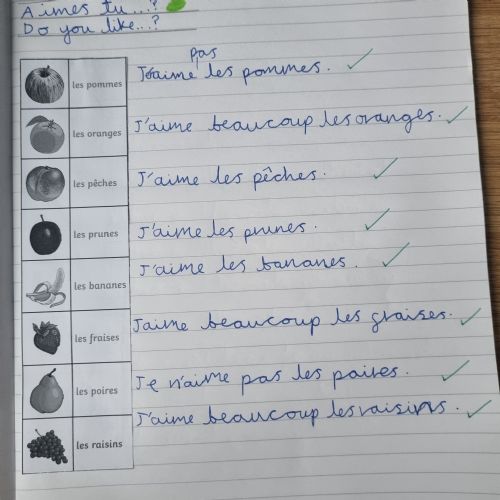 Aimes tu...?
Do you like...?
pas
les pommes J'aime les pommes.
les oranges J'aime beaucoup les oranges.
les pêches J'aime les pêches.
les prunes J'aime les prunes.
les bananes J'aime les bananes.
les fraises Jaime beaucoup les graises.
les poires Je n'aime pas les paires.
les raisins J'aime beaucoup les raisins.